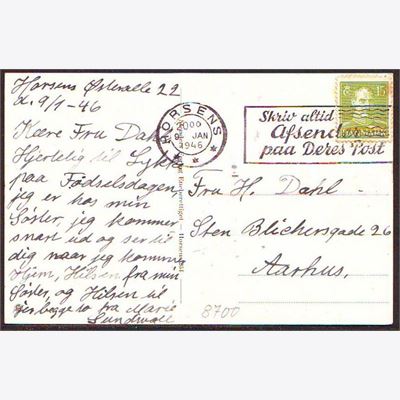 Horsens Østeralle 22
d. 9/1-46
Kære Fru Dahl
Hjertelig til Lykke
paa Fødselsdagen
jeg er hos min
Søster, jeg kommer
snart ud og ser til
dig naar jeg kommer
Hjem, Hilsen fra min
Søster, og Hilsen til
jer begge to fra Marie
Sundwall
HORSENS
JAN
1946
Skriv altid
Afsender
paa Deres Post
15
Fru H. Dahl
Sten Blichersgade 26
Aarhus.
8700